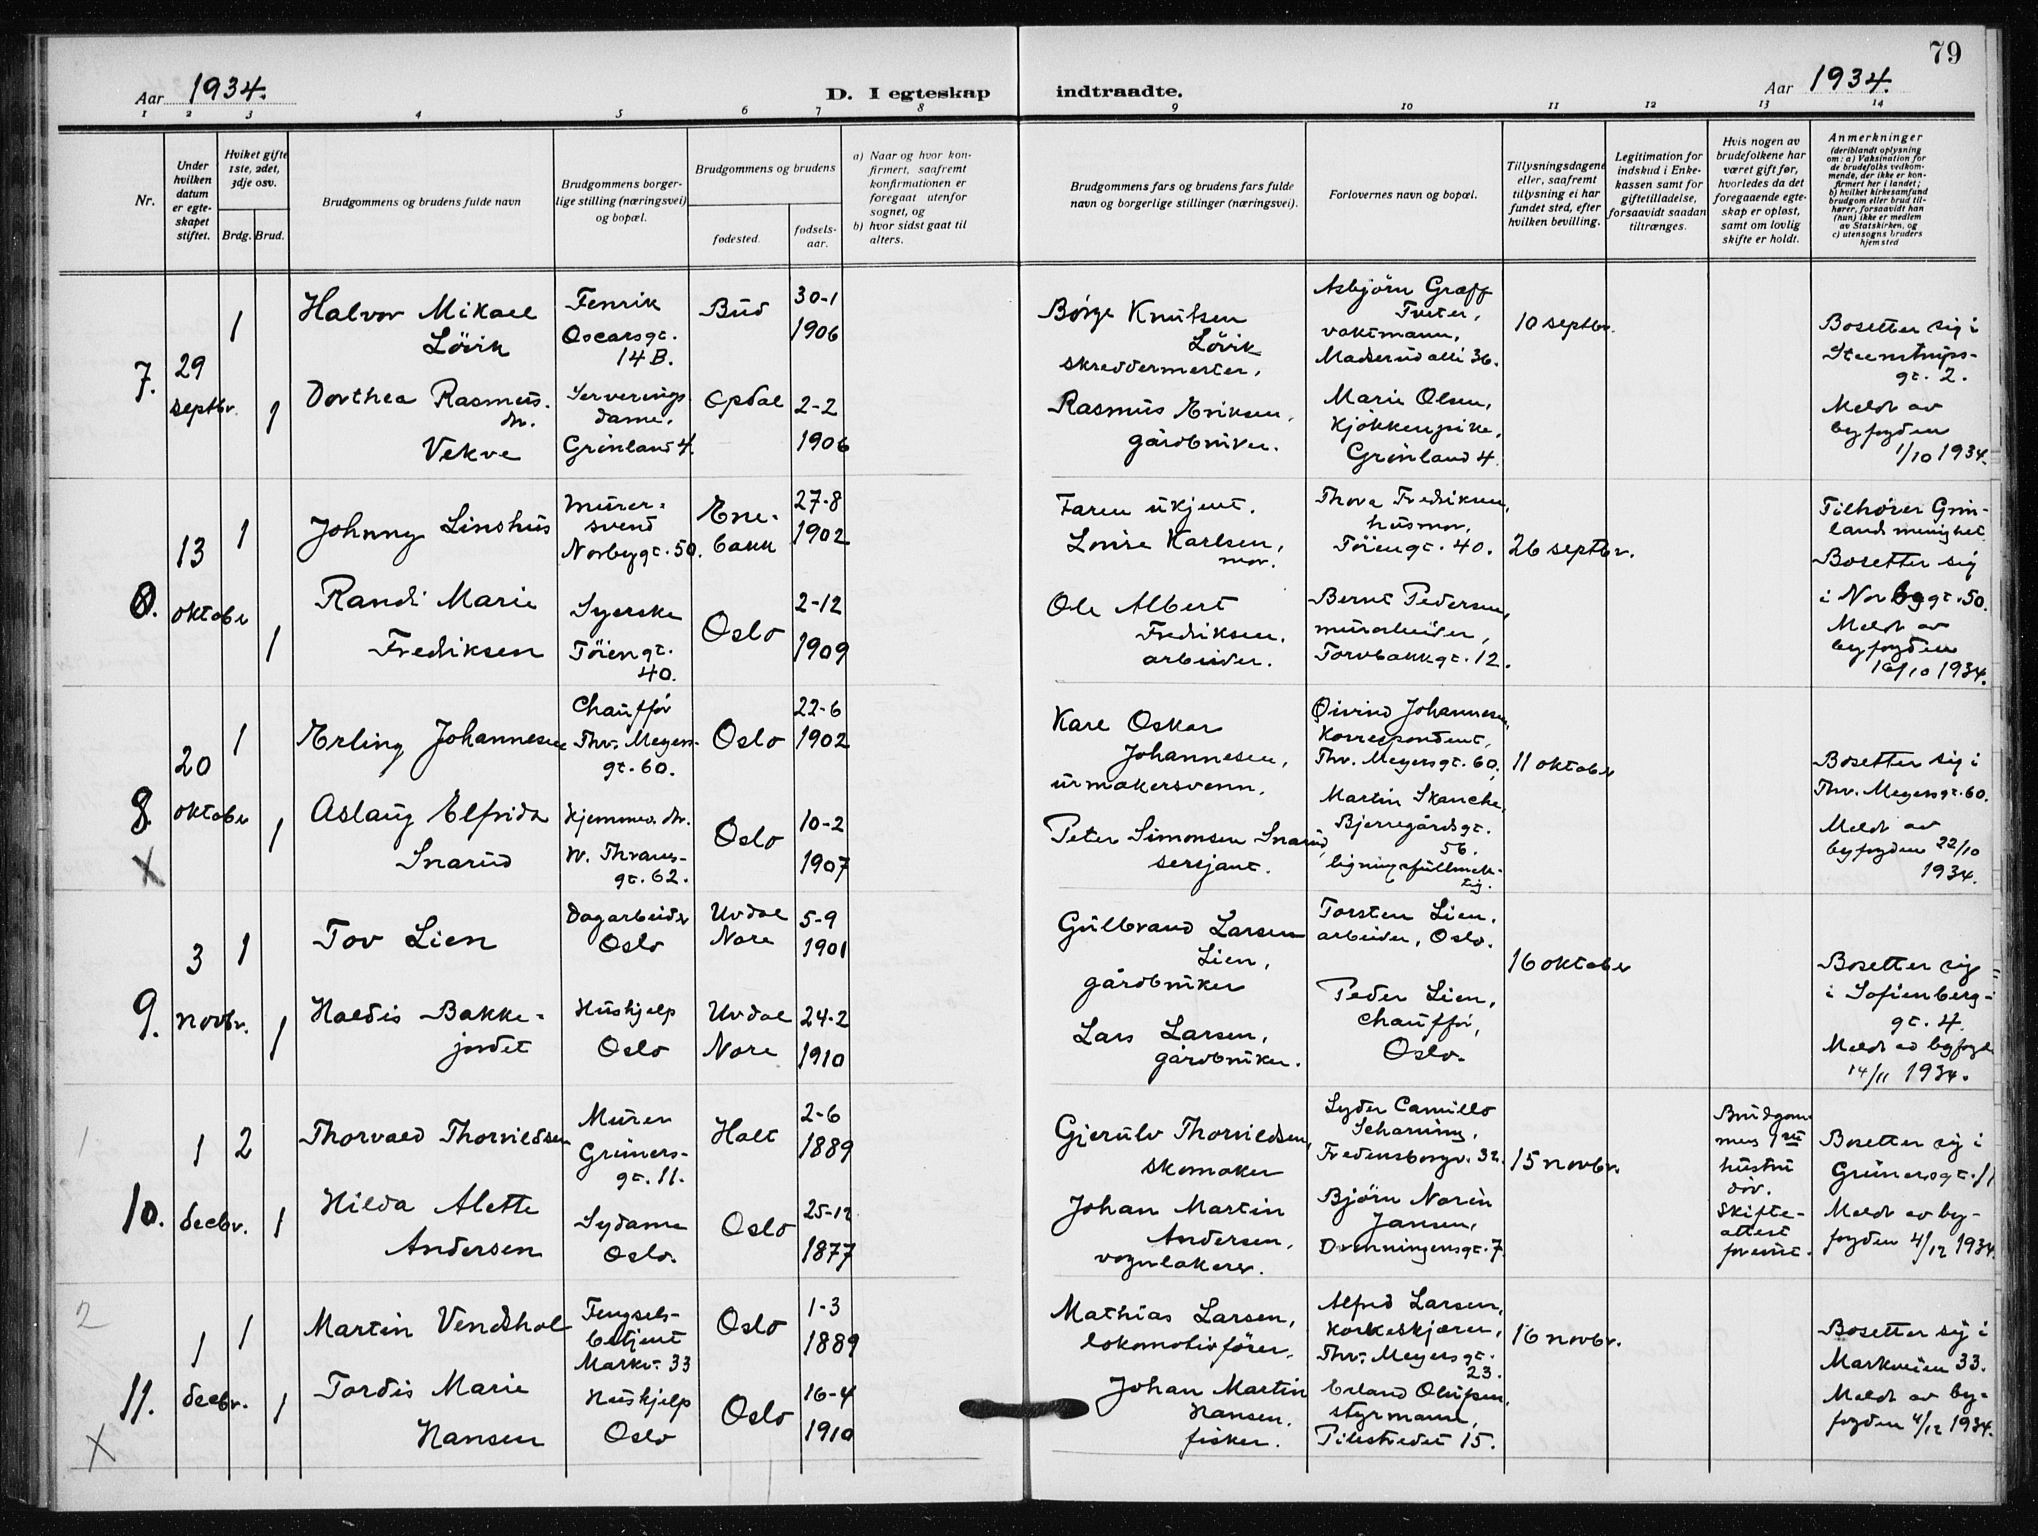 79
Aar 1934.
D. I egteskap
indtraadte.
Aar 1934.
1 2 3 4 5 6 7 8 9 10 11 12 13 14
Nr.
Under
hvilken
datum
er egte-
skapet
stiftet.
Hviket gifte
1ste, 2det,
3dje osv.
Brdg. Brud.
Brudgommens og brudens fulde navn
Brudgommens borger-
lige stilling (næringsvei)
og bopæl.
Brudgommens og brudens
fødested.
fødsels-
aar.
a) Naar og hvor kon-
firmert, saafremt
konfirmationen er
foregaat utenfor
sognet, og
b) hvor sidst gaat til
alters.
Brudgommens fars og brudens fars fulde
navn og borgerlige stillinger (næringsvei).
Forlovernes navn og bopæl.
Tillysningsdagene
eller, saafremt
tillysning ei har
fundet sted, efter
hvilken bevilling.
Legitimation for
indskud i Enke-
kassen samt for
giftetilladelse,
forsaavidt saadan
tiltrænges.
Hvis nogen av
brudefolkene har
været gift før,
hvorledes da det
foregaaende egte-
skap er opløst,
samt om lovlig
skifte er holdt.
Anmerkninger
(deriblandt oplysning
om: a) Vaksination for
de brudefolks vedkom-
mende, der ikke er kon-
firmert her i landet;
b) hvilket kirkesamfund
brudgom eller brud til-
hører, forsaavidt han
(hun) ikke er medlem
av Statskirken, og
c) utensogns bruders
hjemsted
7.
29
septbr.
1
1
Halvor Mikael
Løvik
Dorthea Rasmus-
dtr.
Vekve
Fenrik
Oscarsgt.
14 B.
Serverings
dame.
Grønland 4.
Bud
Opdal
30-1
1906
2-2
1906
Børge Knutsen
Løvik
skreddermester,
Rasmus Eriksen,
gårdbruker.
Asbjørn Græff
Tveter,
vaktmann,
Madserud alle 36.
Marie Olsen,
kjøkkenpike,
Grønland 4.
10 septbr.
Bosetter sig i
Steenstrups-
gt. 2.
Meldt av
byfogden
1/10 1934.
8.
13
oktober
1
1
Johnny Linshus
Randi Marie
Fredriksen
Murer-
svend
Norbygt. 50.
Syerske
Töiengt.
40.
Ene-
bakk
Oslo
27-8
1902
2-12
1909
Faren ukjent.
Lovise Karlsen,
mor.
Ole Albert
Fredriksen,
arbeider.
Thora Fredriksen,
husmor,
Töiengt. 40.
Bernt Pedersen,
murarbeider,
Torvbakkgt. 12.
26 septbr.
Tilhører Grøn-
land menighet
Bosetter sig
i Norbygt. 50.
Meldt av
byfogden
16/10 1934.
8.
X
20
oktober
1
1
Erling Johannesen
Aslaug Elfrida
Snarud
Chauffør
Thv. Meyers-
gt. 60.
Hjemmev. dtr.
W. Thranes-
gt. 62.
Oslo
Oslo
22-6
1902
10-2
1907
Kare Oskar
Johannesen,
urmakersvenn.
Peter Simonsen Snarud,
sersjant.
Øivind Johannesen,
Korrespondent,
Thv. Meyersgt. 60.
Martin Skanche,
Bjerregårdsgt.
56.
ligningsfullmek-
tig.
11 oktober
Bosetter sig i
Thv. Meyersgt. 60.
Meldt av
byfogden 22/10
1934.
9.
3
novbr.
1
1
Tov Lien
Haldis Bakke-
jordet
Dagarbeider
Oslo
Hushjelp
Oslo
Uvdal
Nore
Uvdal
Nore
5-9
1901
24-2
1910
Gulbrand Larsen
Lien,
gårdbruker
Lars Larsen,
gårdbruker.
Torsten Lien,
arbeider, Oslo.
Peder Lien,
chauffør,
Oslo.
16 oktober
Bosetter sig
i Sofienberg-
gt. 4.
Meldt av byfogd.
14/11 1934.
1
10.
1
decbr.
2
1
Thorvald Thorvildsen
Hilda Alette
Andersen
Murer
Grüners-
gt. 11.
Sydame
Oslo.
Holt
Oslo
2-6
1889
25-12
1877
Gjerulv Thorvildsen,
skomaker
Johan Martin
Andersen,
vognlakerer.
Lyder Camillo
Scharning,
Fredensborgv. 32.
Bjørn Narin
Jansen,
Dronningensgt. 7.
15 novbr.
Brudgom-
mens 1ste
hustru
död.
Skifte-
attest
forevist.
Bosetter sig i
Grünersgt. 11
Meldt av by-
fogden 4/12 1934.
2
11.
X
1
decbr.
1
1
Martin Vendshol
Tordis Marie
Hansen
Fengsels-
betjent
Markv. 33
Hushjelp
Oslo
Oslo
Oslo
1-3
1889
16-4
1910
Mathias Larsen,
lokomotivfører.
Johan Martin
Hansen,
fisker.
Alfred Larsen,
Korkeskjærer,
Thv. Meyersgt.
23.
Erland Olufsen,
styrmann,
Pilestredet 15.
16 novbr.
Bosetter sig i
Markveien 33.
Meldt av by-
fogden 4/12 1934.